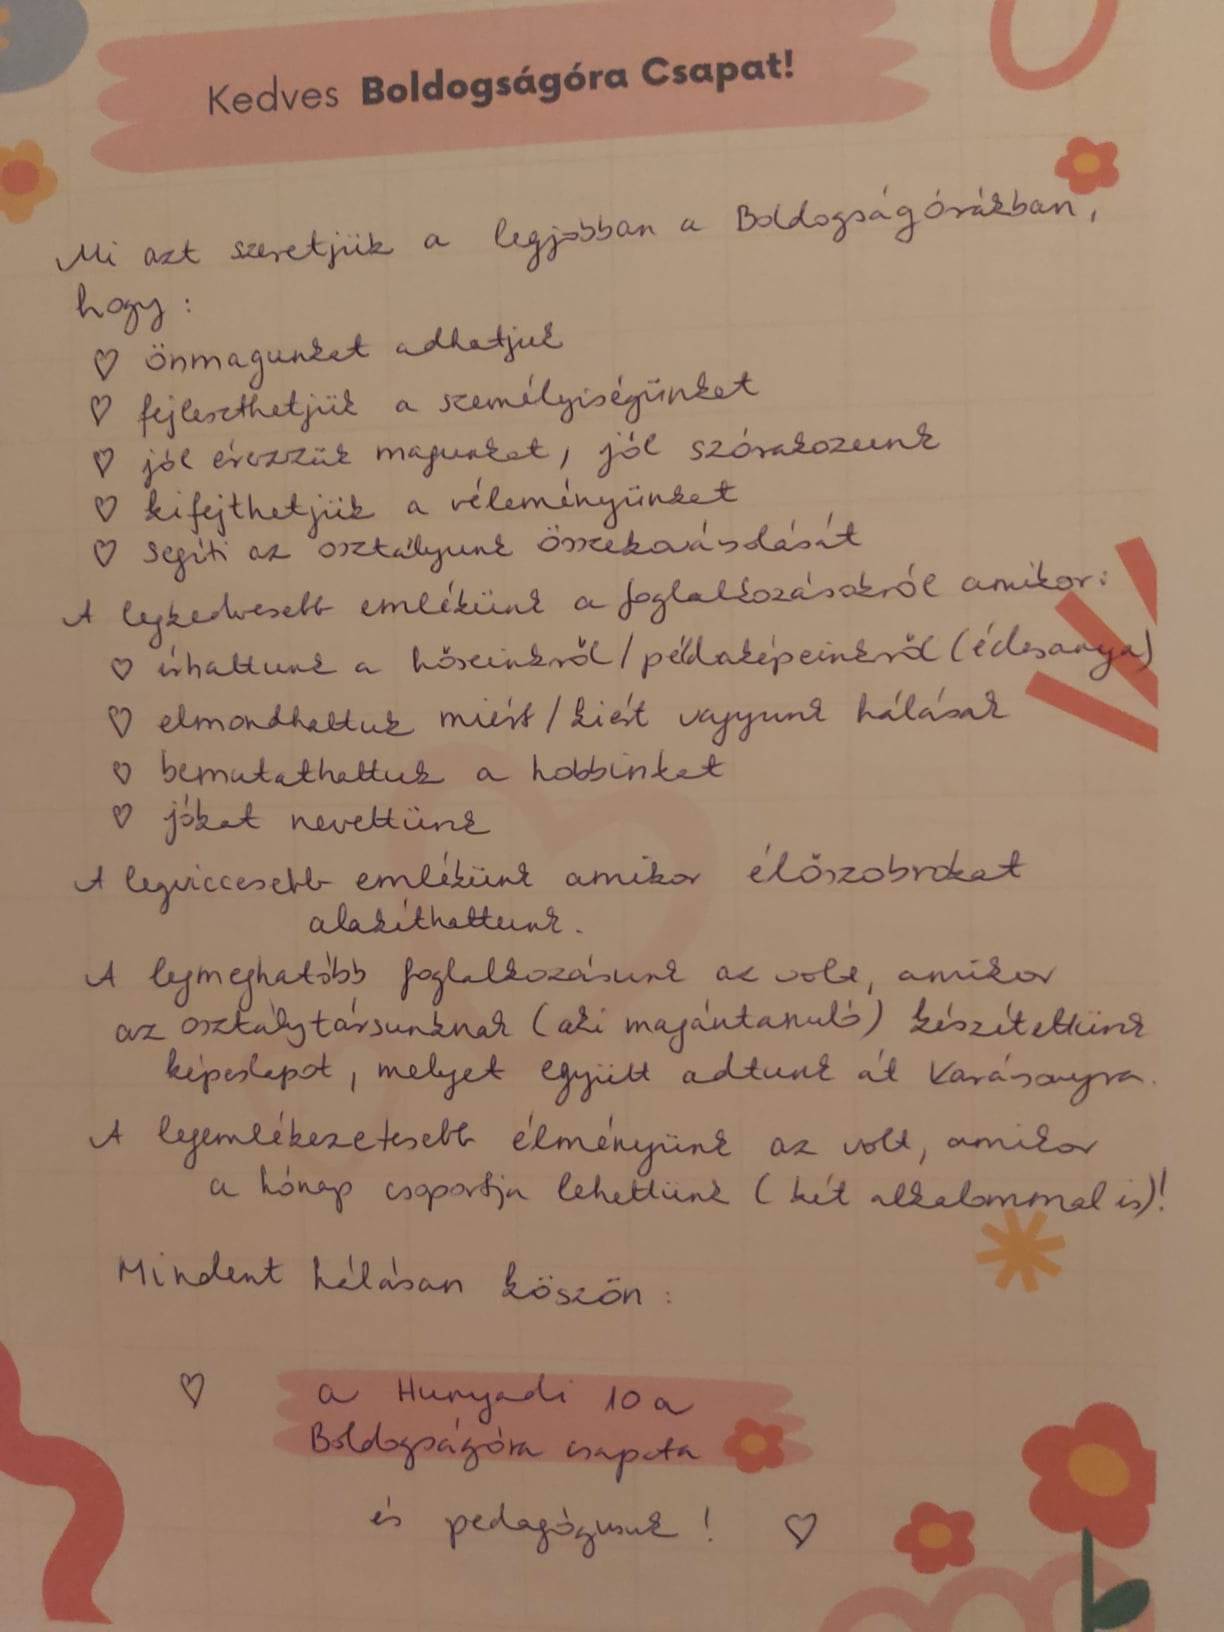 Kedves Boldogságóra Csapat!
Mi azt szeretjük a legjobban a Boldogságórákban,
hogy:
♡ önmagunkat adhatjuk
♡ fejleszthetjük a személyiségünket
♡ jól érezzük magunkat, jól szórakozunk
♡ kifejthetjük a véleményünket
♡ segíti az osztályunk összekovásolását
A legkedvesebb emlékünk a foglalkozásokról amikor:
♡ írhattunk a hőseinkről/példaképeinkről (édesanya)
♡ elmondhattuk miért/kiért vagyunk hálásak
♡ bemutathattuk a hobbinkat
♡ jókat nevettünk
A legviccesebb emlékünk amikor élőszobrokat
alakíthattunk.
A legmeghatóbb foglalkozásunk az volt, amikor
az osztálytársunknak (aki magántanuló) készítettünk
képeslapot, melyet együtt adtunk át Karácsonyra.
A legemlékezetesebb élményünk az volt, amikor
a hónap csoportja lehettünk (két alkalommal is)!
Mindent hálásan köszön:
♡ a Hunyadi 10a
Boldogságóra csapata
és pedagógusuk! ♡